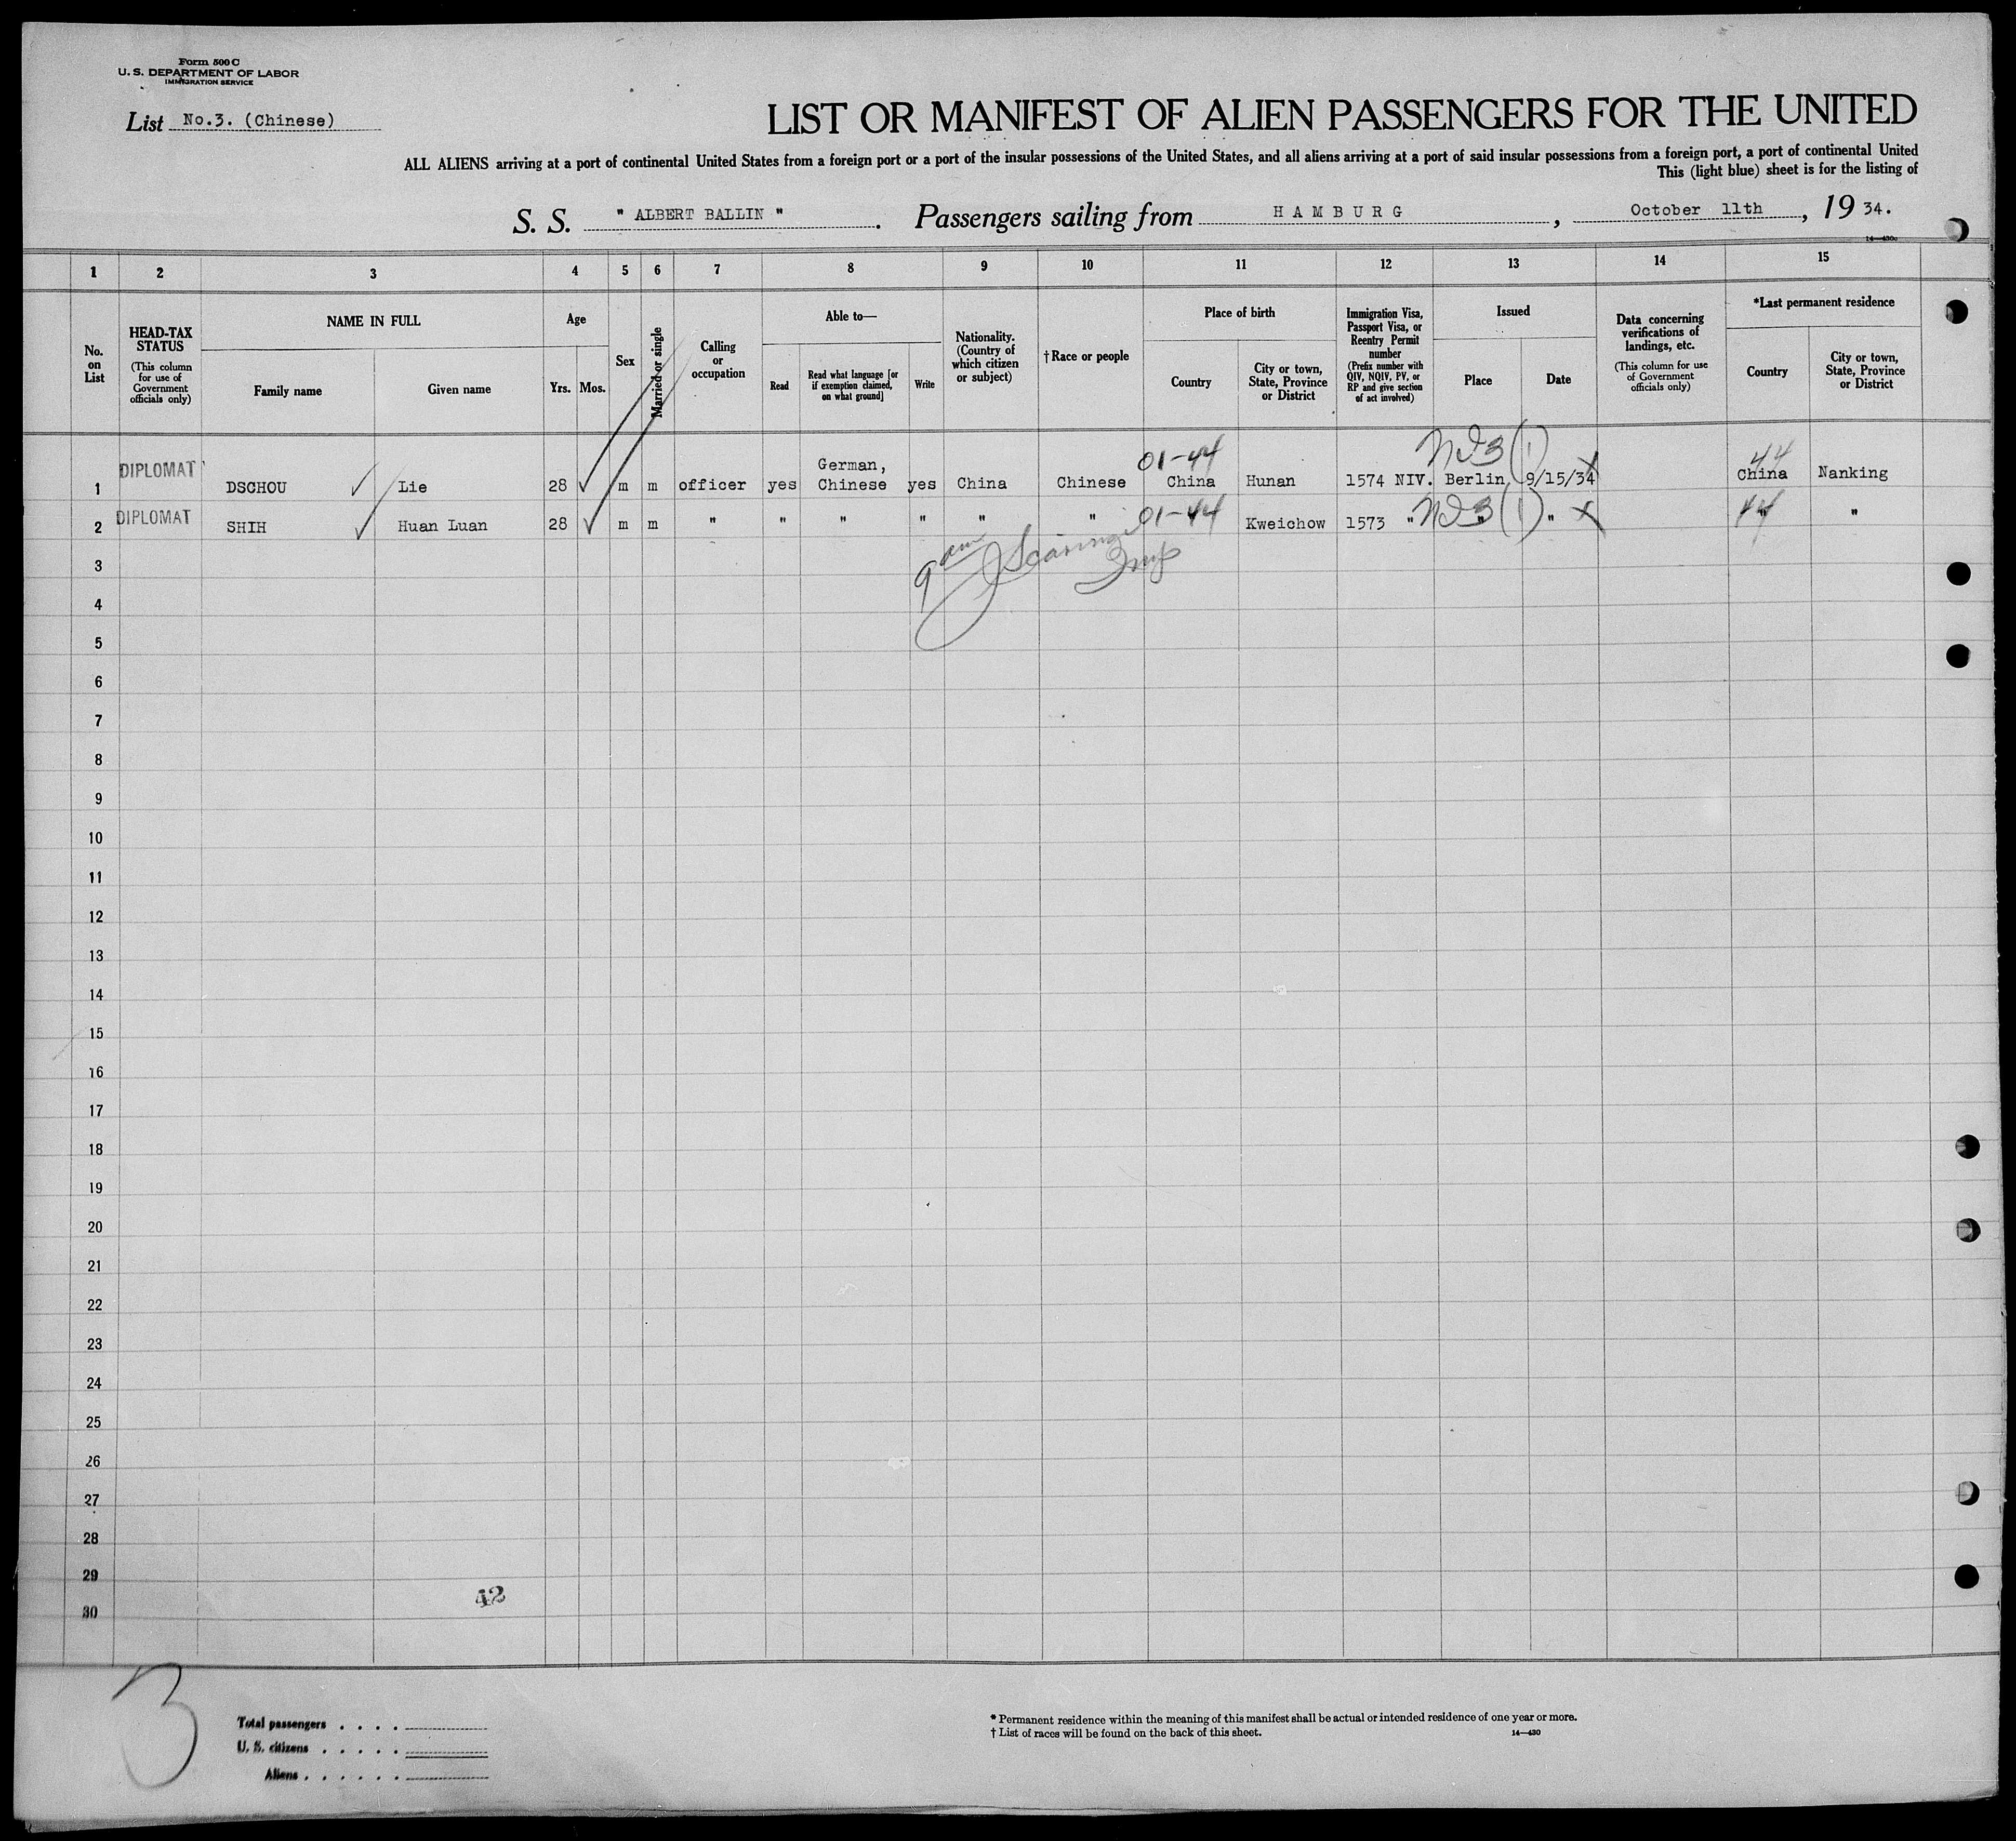 Form 500 C
U. S. DEPARTMENT OF LABOR
IMMIGRATION SERVICE
List No.3. (Chinese)
LIST OR MANIFEST OF ALIEN PASSENGERS FOR THE UNITED
ALL ALIENS arriving at a port of continental United States from a foreign port or a port of the insular possessions of the United States, and all aliens arriving at a port of said insular possessions from a foreign port, a port of continental United
This (light blue) sheet is for the listing of
S. S. " ALBERT BALLIN ". Passengers sailing from HAMBURG, October 11th, 19 34.
14—430c
1 2 3 4 5 6 7 8 9 10 11 12 13 14 15
No. on List
HEAD-TAX STATUS
(This column for use of Government officials only)
NAME IN FULL
Family name
Given name
Age
Yrs. Mos.
Sex
Married or single
Calling or occupation
Able to—
Read
Read what language [or if exemption claimed, on what ground]
Write
Nationality. (Country of which citizen or subject)
† Race or people
Place of birth
Country
City or town, State, Province or District
Immigration Visa, Passport Visa, or Reentry Permit number
(Prefix number with QIV, NQIV, PV, or RP and give section of act involved)
Issued
Place
Date
Data concerning verifications of landings, etc.
(This column for use of Government officials only)
*Last permanent residence
Country
City or town, State, Province or District
01-44 44
1 DIPLOMAT DSCHOU Lie 28 m m officer yes German, Chinese yes China Chinese China Hunan 1574 NIV. Berlin 9/15/34 China Nanking
2 DIPLOMAT SHIH Huan Luan 28 m m " " " " " " 01-44 Kweichow 1573 " " " 44 " "
9 am
Insp
3
4
5
6
7
8
9
10
11
12
13
14
15
16
17
18
19
20
21
22
23
24
25
26
27
28
29
42
30
3
Total passengers . . . .
U. S. citizens . . . . .
Aliens . . . . . .
* Permanent residence within the meaning of this manifest shall be actual or intended residence of one year or more.
† List of races will be found on the back of this sheet.
14—430